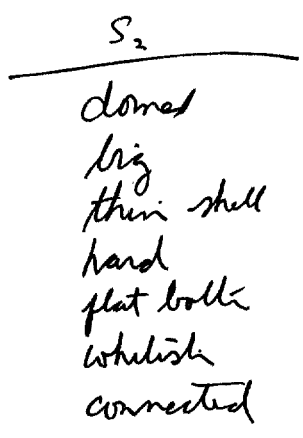 S₂
domed
big
thin shell
hard
flat bottom
whitish
connected